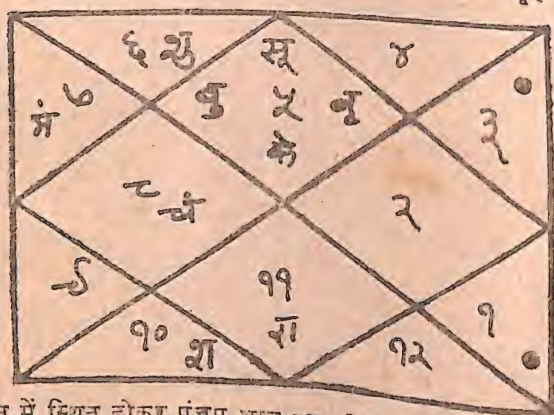 ६ शु
सू
४
मं ७
बु ५ बृ
३
के
८ चं
२
९
११
रा
१
१० श
१२
में स्थित होकर पंचम